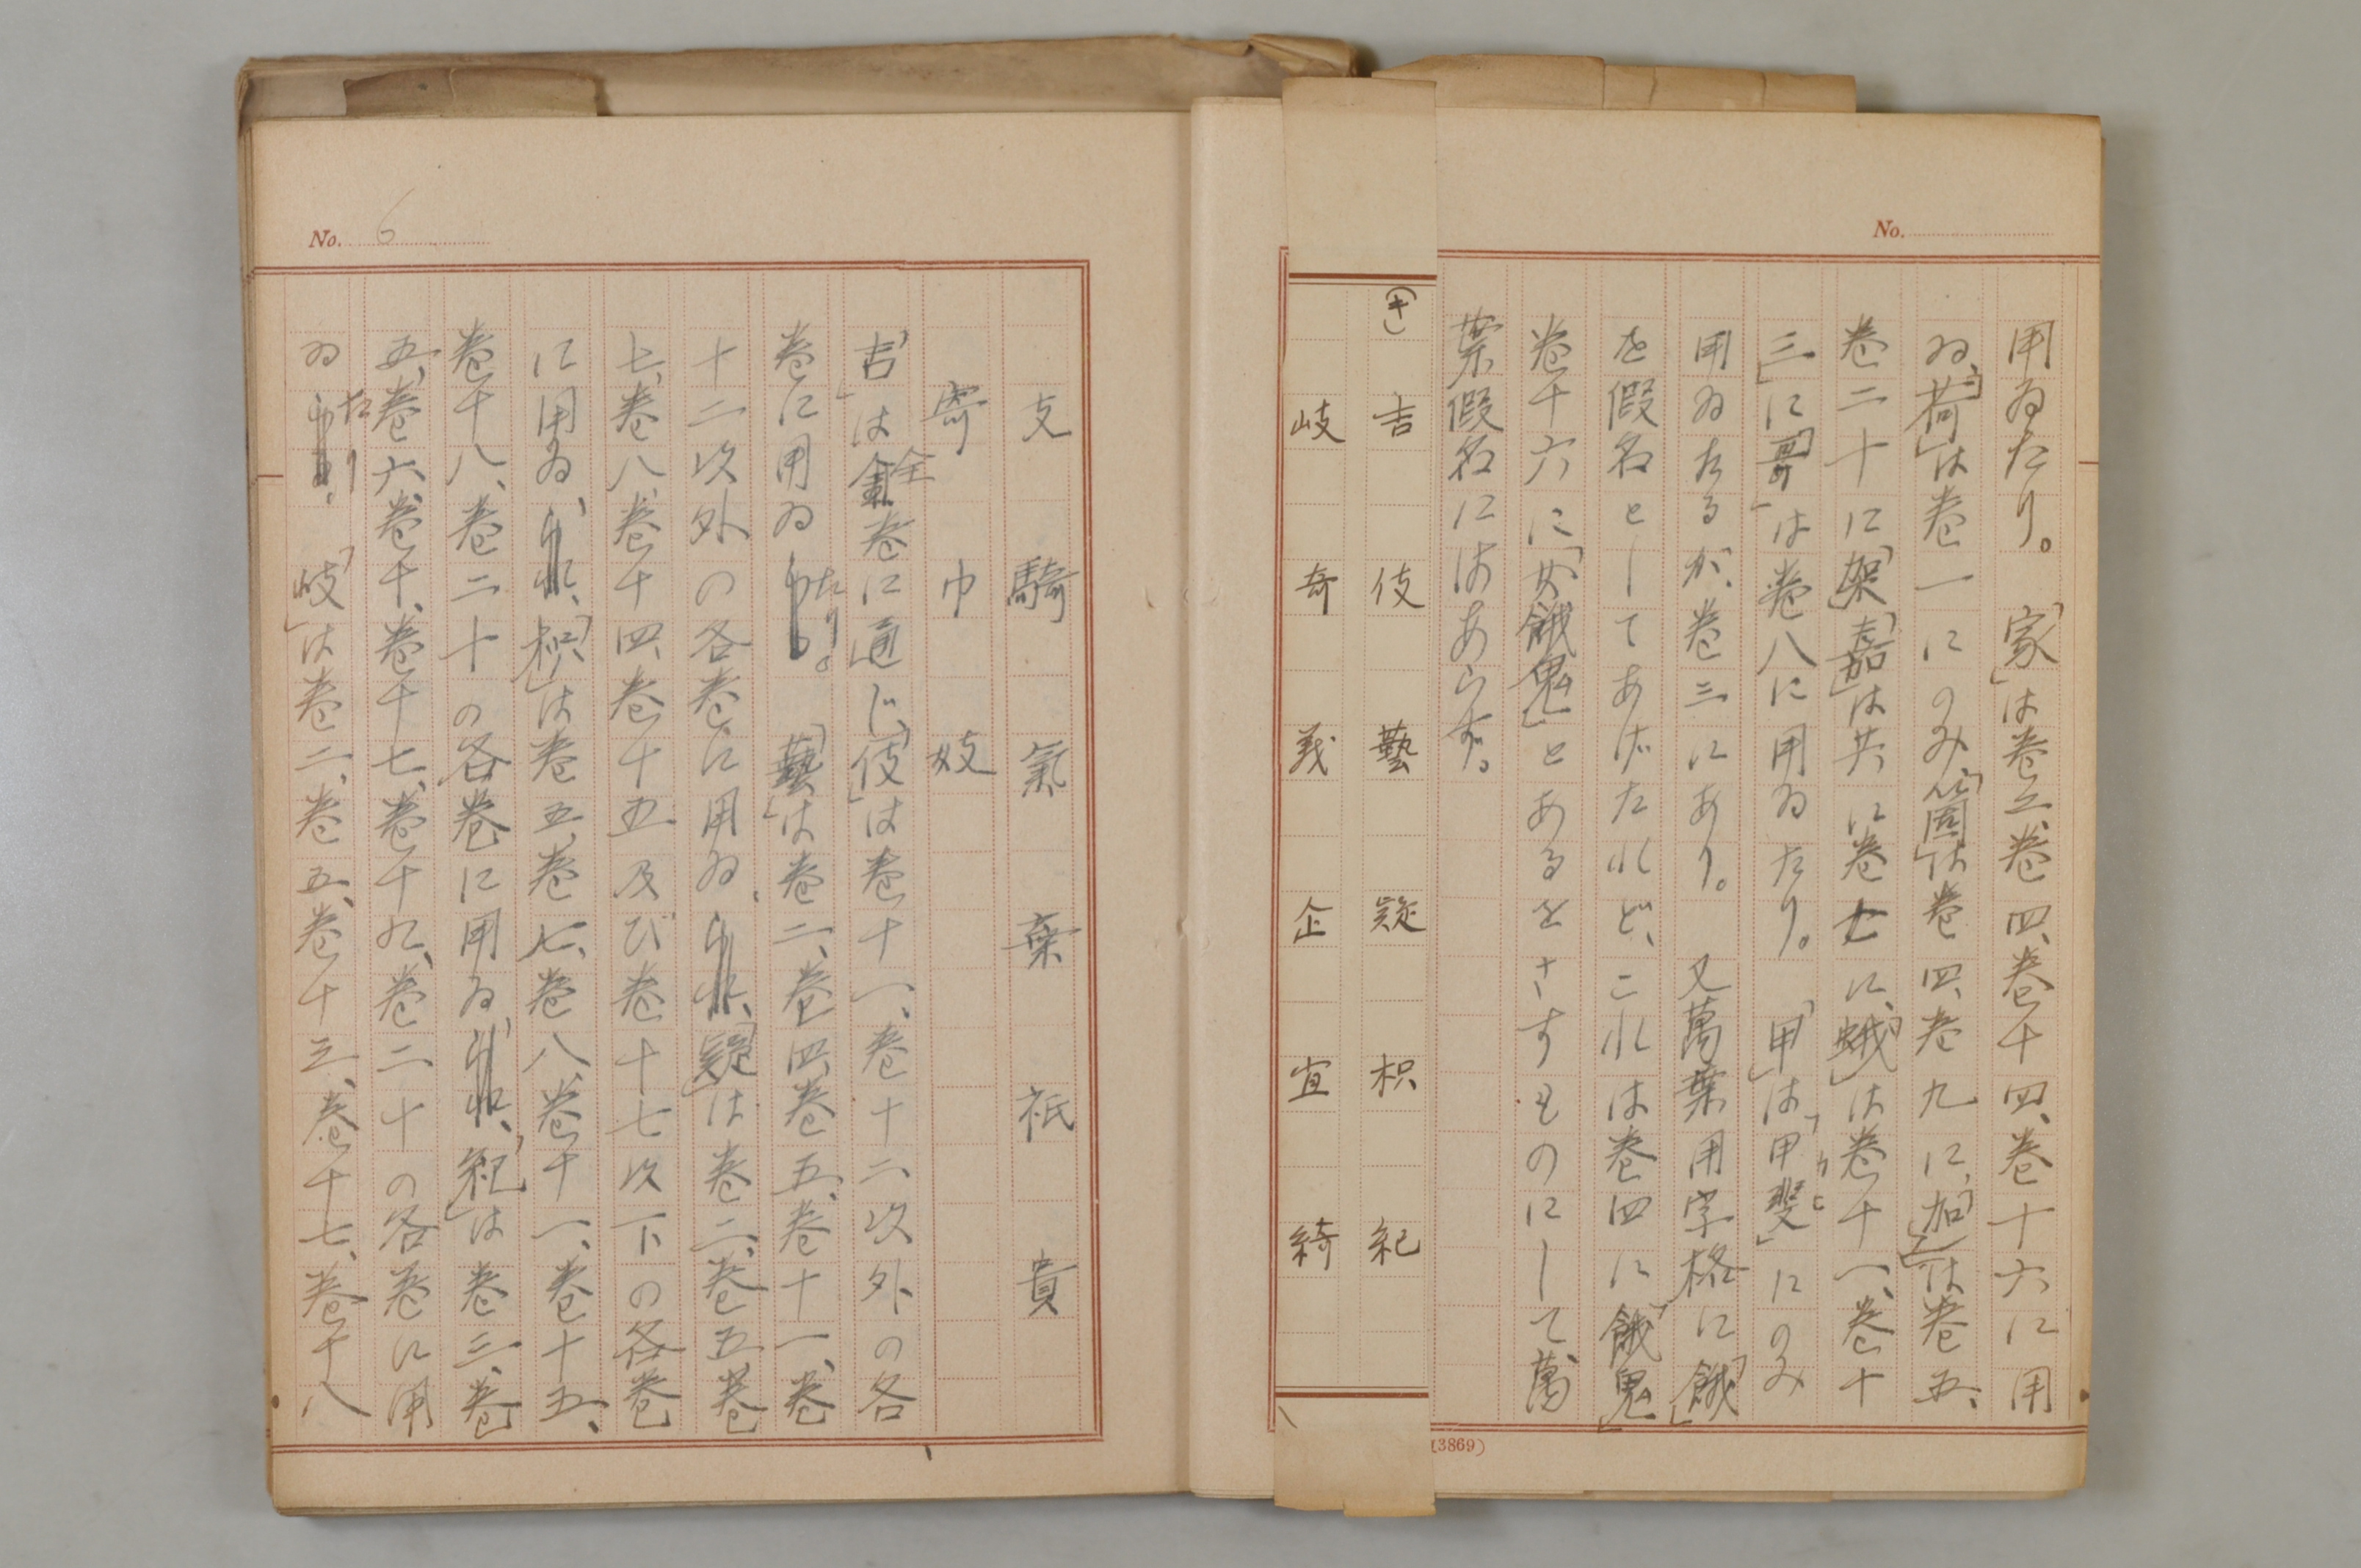 No.
用ゐたり。「家」は巻三、巻四、巻十四、巻十六に用
ゐ、「荷」は巻一にのみ、「箇」は巻四、巻九に、「加」は巻五、
巻二十に、「架」「嘉」は共に巻七に、「蛾」は巻十一、巻十
三に「哥」は巻八に用ゐたり。「甲」は「甲斐」にのみ
カヒ
用ゐたるが、巻三にあり。又萬葉用字格に「餓」
を假名としてあげたれど、これは巻四に「餓鬼」
巻十六に「女餓鬼」とあるをさすものにして萬
葉假名にはあらず。
(き) 吉 伎 藝 疑 枳 紀
岐 奇 義 企 宜 綺
3869)
No. 6
支 騎 氣 棄 祇 貴
寄 巾 妓
「吉」は全巻に通じ、「伎」は巻十一、巻十二以外の各
巻に用ゐたり。「藝」は巻二、巻四、巻五、巻十一、巻
十二以外の各巻に用ゐ、「疑」は巻二、巻五、巻
七、巻八、巻十四、巻十五及び巻十七以下の各巻
に用ゐ、「枳」は巻五、巻七、巻八、巻十一、巻十五、
巻十八、巻二十の各巻に用ゐ、「紀」は巻三、巻
五、巻六、巻十、巻十七、巻十九、巻二十の各巻に用
ゐたり。「岐」は巻二、巻五、巻十三、巻十七、巻十八